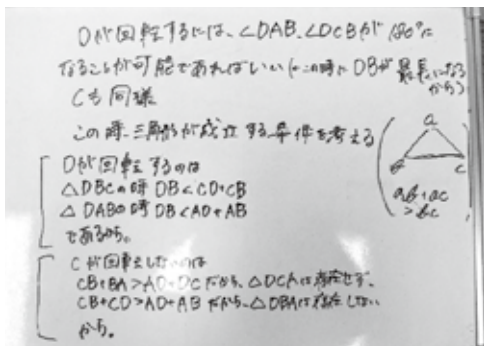 Dが回転するには、∠DAB、∠DCBが180°に
なることが可能であればいい(←この時にDBが最長になるから)
Cも同様
この時、三角形が成立する条件を考える
Dが回転するのは
△DBCの時 DB<CD+CB
△DABの時 DB<AD+AB
であるから。
Cが回転しないのは
CB+BA>AD+DCだから、△DCAは存在せず、
CB+CD>AD+ABだから、△DBAは存在しない
から。
a
B
c
ab+ac
>bc